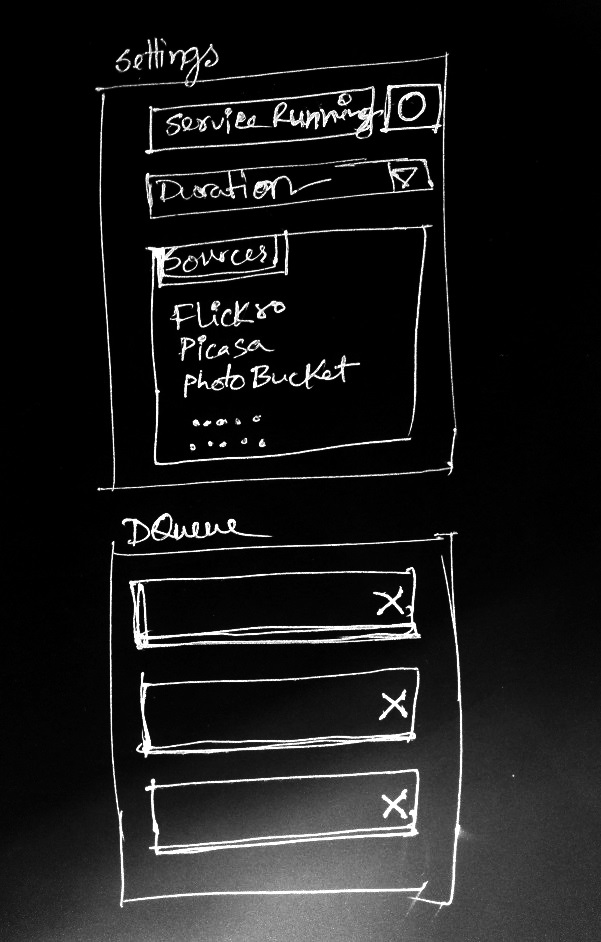 Settings
Service Running
Duration
Sources
Flickr
Picasa
PhotoBucket
DQueue
X
X
X